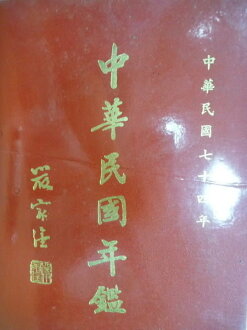 中華民國七十四年
中華民國年鑑
嚴家淦